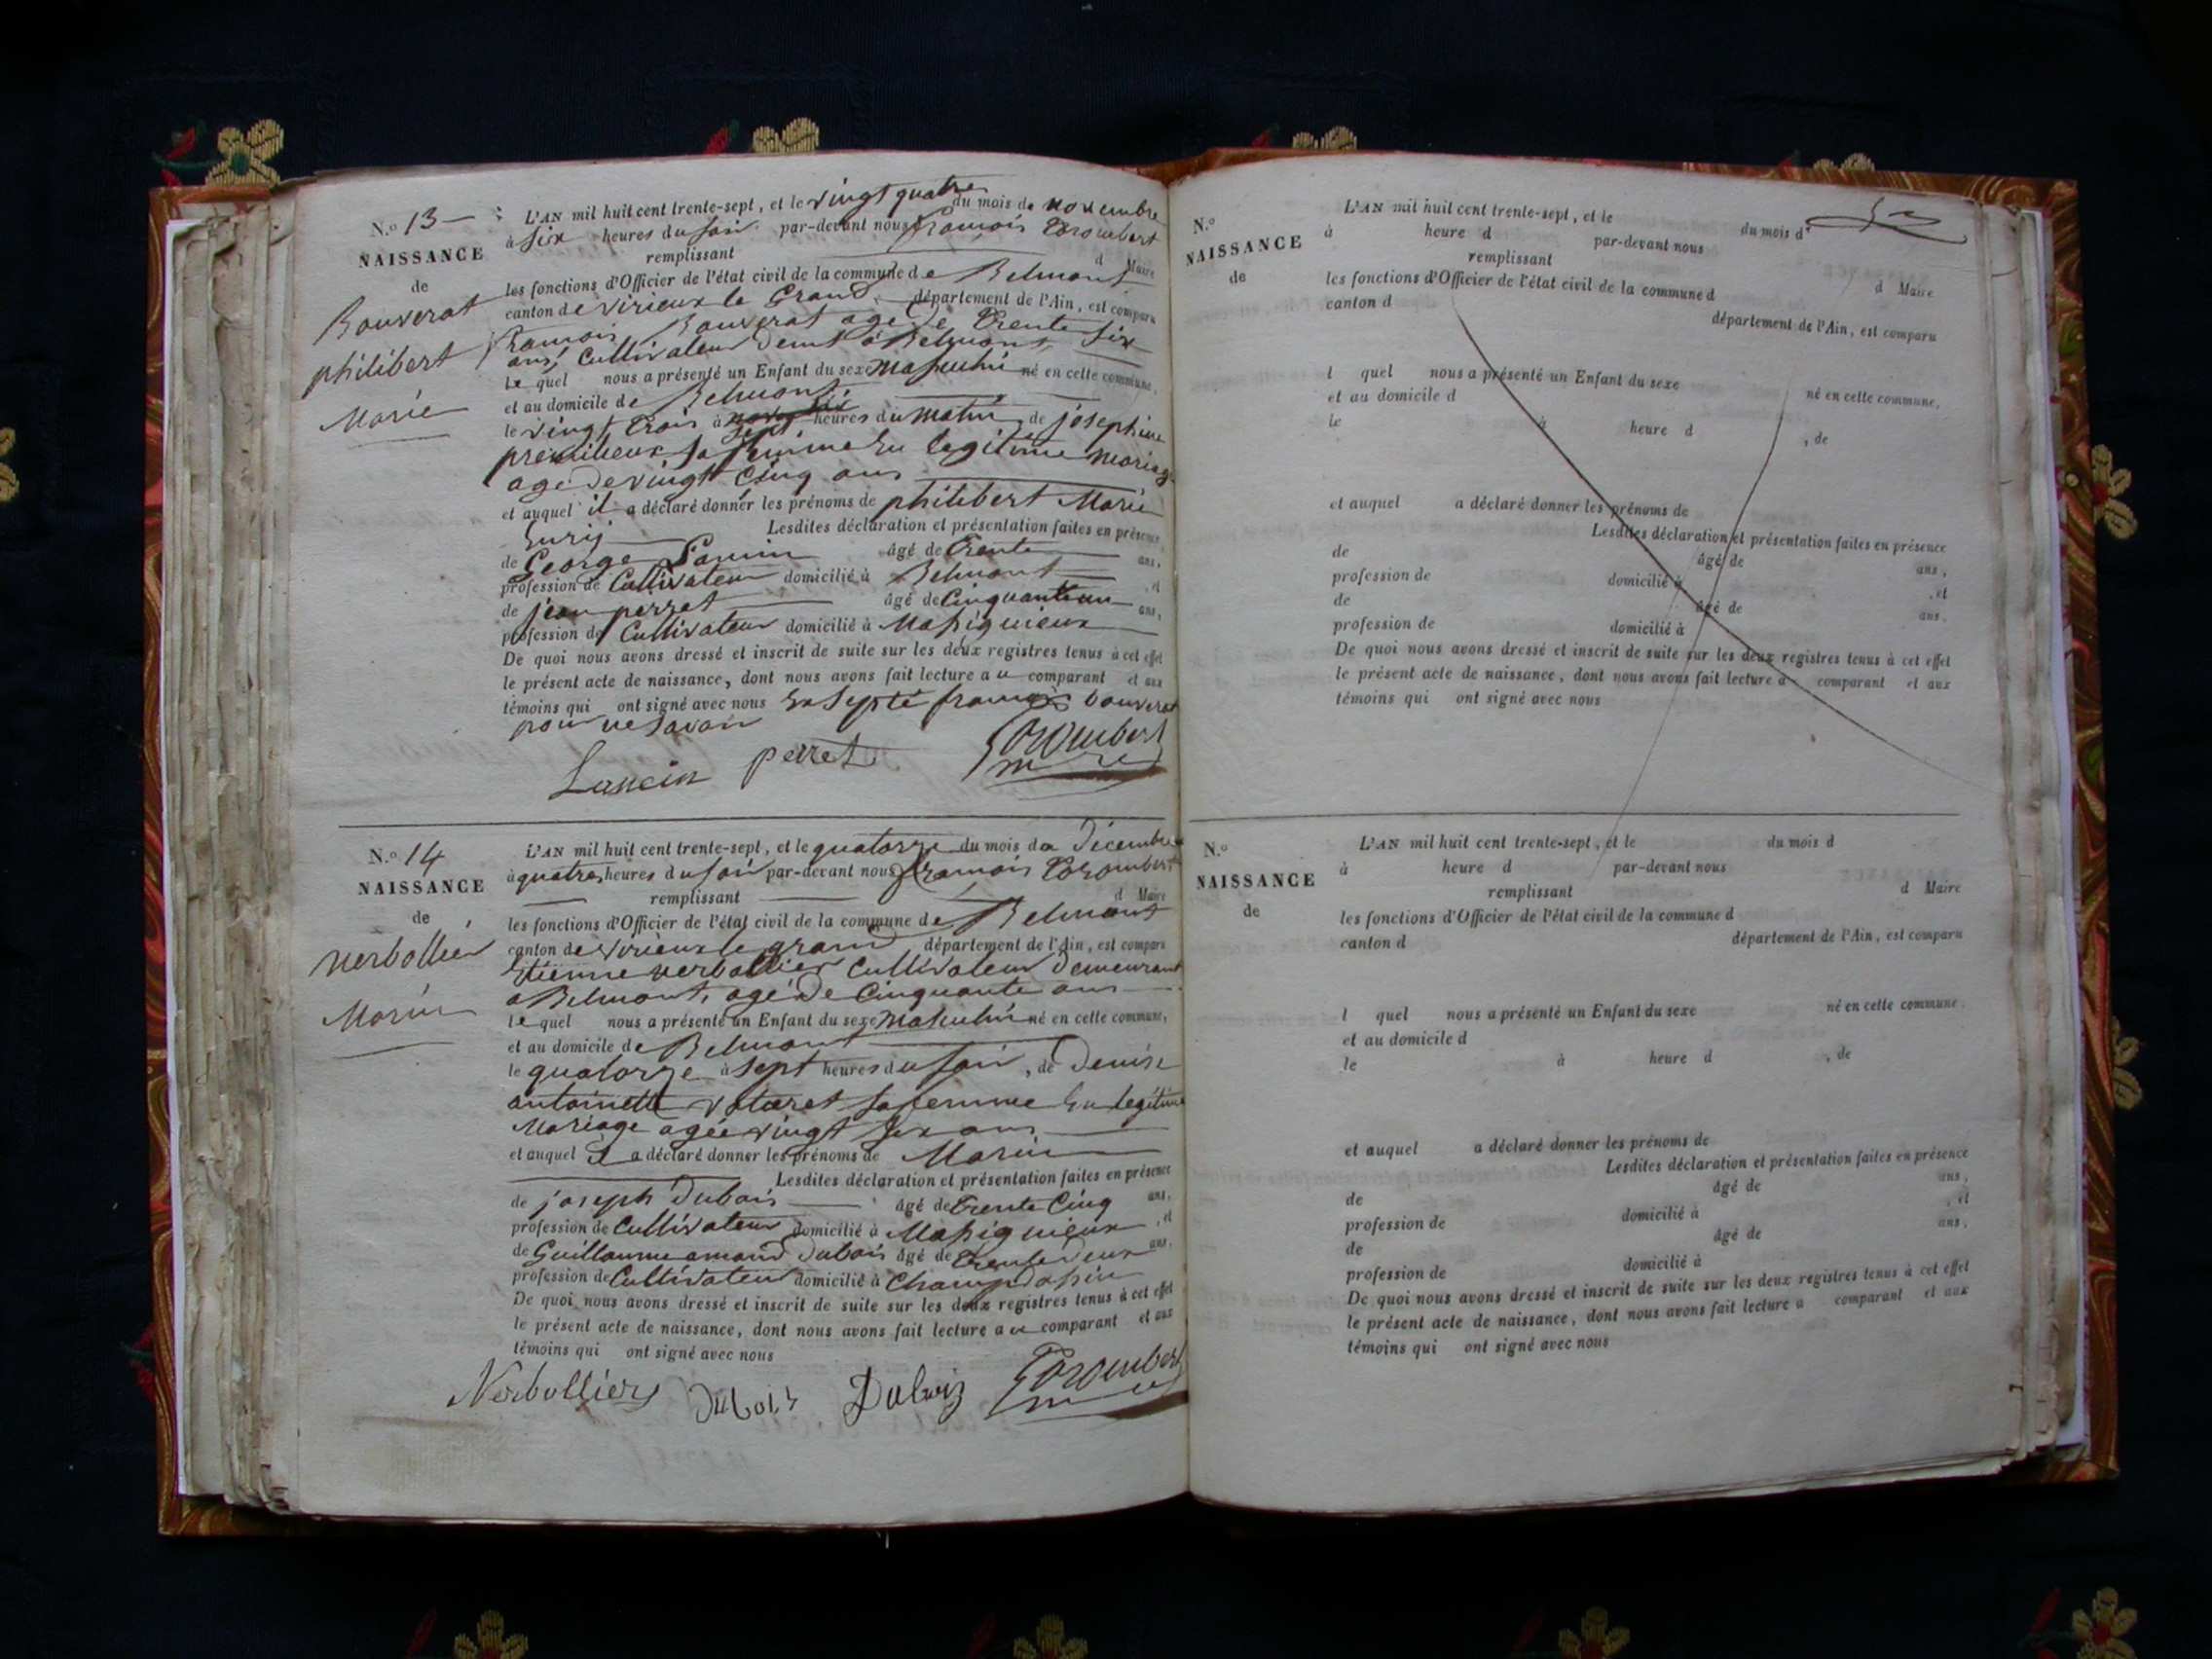 N.o 13
NAISSANCE
de
Bouverat
philibert
Marie
L'AN mil huit cent trente-sept, et le vingt quatre du mois de novembre
à six heures du soir par-devant nous françois Corombert
remplissant d Maire
les fonctions d'Officier de l'état civil de la commune de Belmont
canton de virieux le Grand, département de l'Ain, est comparu
françois Bouverat age de trente six
ans, Cultivateur demt à Belmont
le quel nous a présenté un Enfant du sexe Masculin né en cette commune,
et au domicile de Belmont
le vingt trois à sept heures du matin de joséphine
sa femme En legitime mariage
age de vingt Cinq ans
et auquel il a déclaré donner les prénoms de philibert Marie
Lesdites déclaration et présentation faites en présence
de George Lancin âgé de trente ans,
profession de Cultivateur domicilié à Belmont, et
de jean perret âgé de Cinquante un ans,
profession de Cultivateur domicilié à Massignieux
De quoi nous avons dressé et inscrit de suite sur les deux registres tenus à cet effet
le présent acte de naissance, dont nous avons fait lecture au comparant et aux
témoins qui ont signé avec nous Excepté françois bouverat
pour ne savoir
Lancin perret Corombert
N.o 14
NAISSANCE
de
verbollier
Marin
L'AN mil huit cent trente-sept, et le quatorze du mois de Décembre
à quatre heures du soir par-devant nous françois Corombert
remplissant d Maire
les fonctions d'Officier de l'état civil de la commune de Belmont
canton de virieux le grand département de l'Ain, est comparu
Etienne verbollier Cultivateur Demeurant
a Belmont, agé de Cinquante ans
le quel nous a présenté un Enfant du sexe Masculin né en cette commune,
et au domicile de Belmont
le quatorze à sept heures du soir, de Denise
antoinette sa femme En legitime
Mariage agée vingt six ans
et auquel il a déclaré donner les prénoms de Marin
Lesdites déclaration et présentation faites en présence
de joseph Dubois âgé de trente Cinq ans,
profession de Cultivateur domicilié à Massignieux, et
de Guillaume amand Dubois âgé de trente deux ans,
profession de Cultivateur domicilié à Champdossin
De quoi nous avons dressé et inscrit de suite sur les deux registres tenus à cet effet
le présent acte de naissance, dont nous avons fait lecture au comparant et aux
témoins qui ont signé avec nous
Verbolliers Dubois Duboiz Corombert
N.o
NAISSANCE
de
L'AN mil huit cent trente-sept, et le du mois d
à heure d par-devant nous
remplissant d Maire
les fonctions d'Officier de l'état civil de la commune d
canton d département de l'Ain, est comparu
l quel nous a présenté un Enfant du sexe né en cette commune,
et au domicile d
le à heure d , de
et auquel a déclaré donner les prénoms de
Lesdites déclaration et présentation faites en présence
de âgé de ans,
profession de domicilié à , et
de âgé de ans,
profession de domicilié à
De quoi nous avons dressé et inscrit de suite sur les deux registres tenus à cet effet
le présent acte de naissance, dont nous avons fait lecture a comparant et aux
témoins qui ont signé avec nous
N.o
NAISSANCE
de
L'AN mil huit cent trente-sept, et le du mois d
à heure d par-devant nous
remplissant d Maire
les fonctions d'Officier de l'état civil de la commune d
canton d département de l'Ain, est comparu
l quel nous a présenté un Enfant du sexe né en cette commune
et au domicile d
le à heure d , de
et auquel a déclaré donner les prénoms de
Lesdites déclaration et présentation faites en présence
de âgé de ans,
profession de domicilié à , et
de âgé de ans,
profession de domicilié à
De quoi nous avons dressé et inscrit de suite sur les deux registres tenus à cet effet
le présent acte de naissance, dont nous avons fait lecture a comparant et aux
témoins qui ont signé avec nous